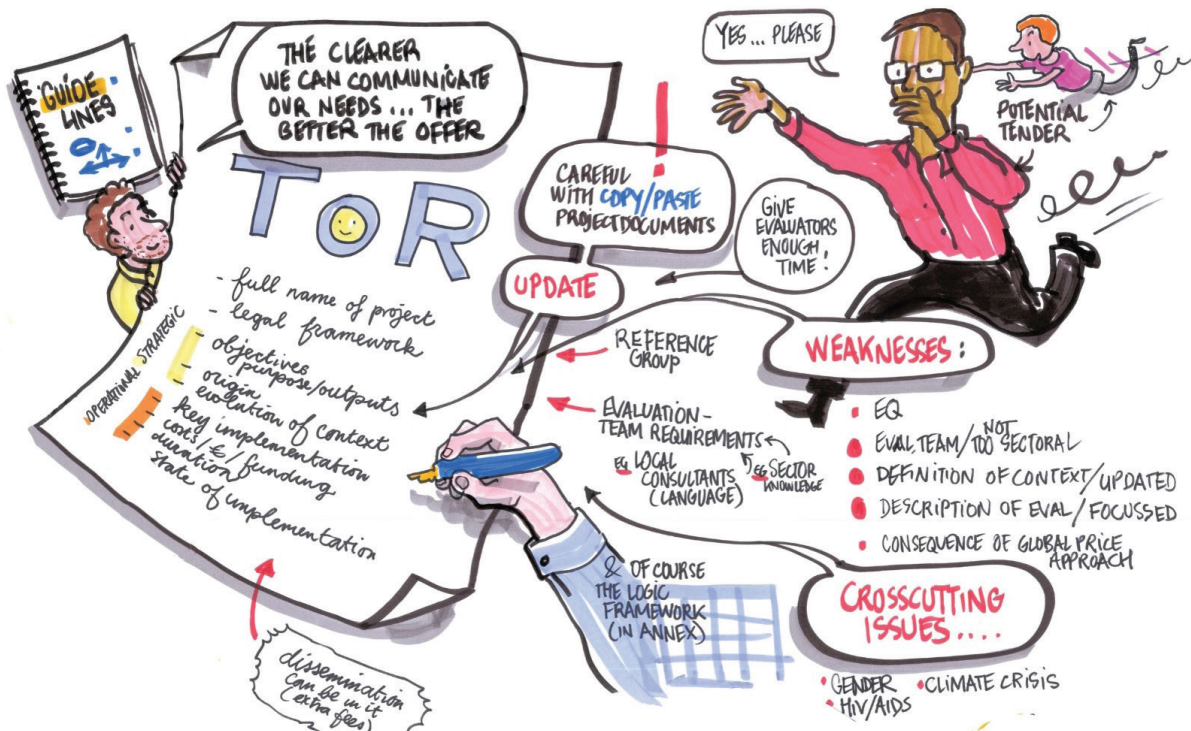 GUIDE
LINES
THE CLEARER
WE CAN COMMUNICATE
OUR NEEDS... THE
BETTER THE OFFER
TOR
- full name of project
- legal framework
STRATEGIC
objectives
purpose/outputs
origin
evolution of context
OPERATIONAL
key implementation
costs €/funding
duration
state of implementation
dissemination
can be in it
(extra fees)
!
CAREFUL
WITH COPY/PASTE
PROJECT DOCUMENTS
UPDATE
GIVE
EVALUATORS
ENOUGH
TIME!
YES... PLEASE
POTENTIAL
TENDER
REFERENCE
GROUP
EVALUATION-
TEAM REQUIREMENTS
EG LOCAL
CONSULTANTS
(LANGUAGE)
EG SECTOR
KNOWLEDGE
& OF COURSE
THE LOGIC
FRAMEWORK
(IN ANNEX)
WEAKNESSES:
• EQ
• EVAL.TEAM/NOT TOO SECTORAL
• DEFINITION OF CONTEXT/UPDATED
• DESCRIPTION OF EVAL/FOCUSSED
• CONSEQUENCE OF GLOBAL PRICE
APPROACH
CROSSCUTTING
ISSUES....
• GENDER • CLIMATE CRISIS
• HIV/AIDS